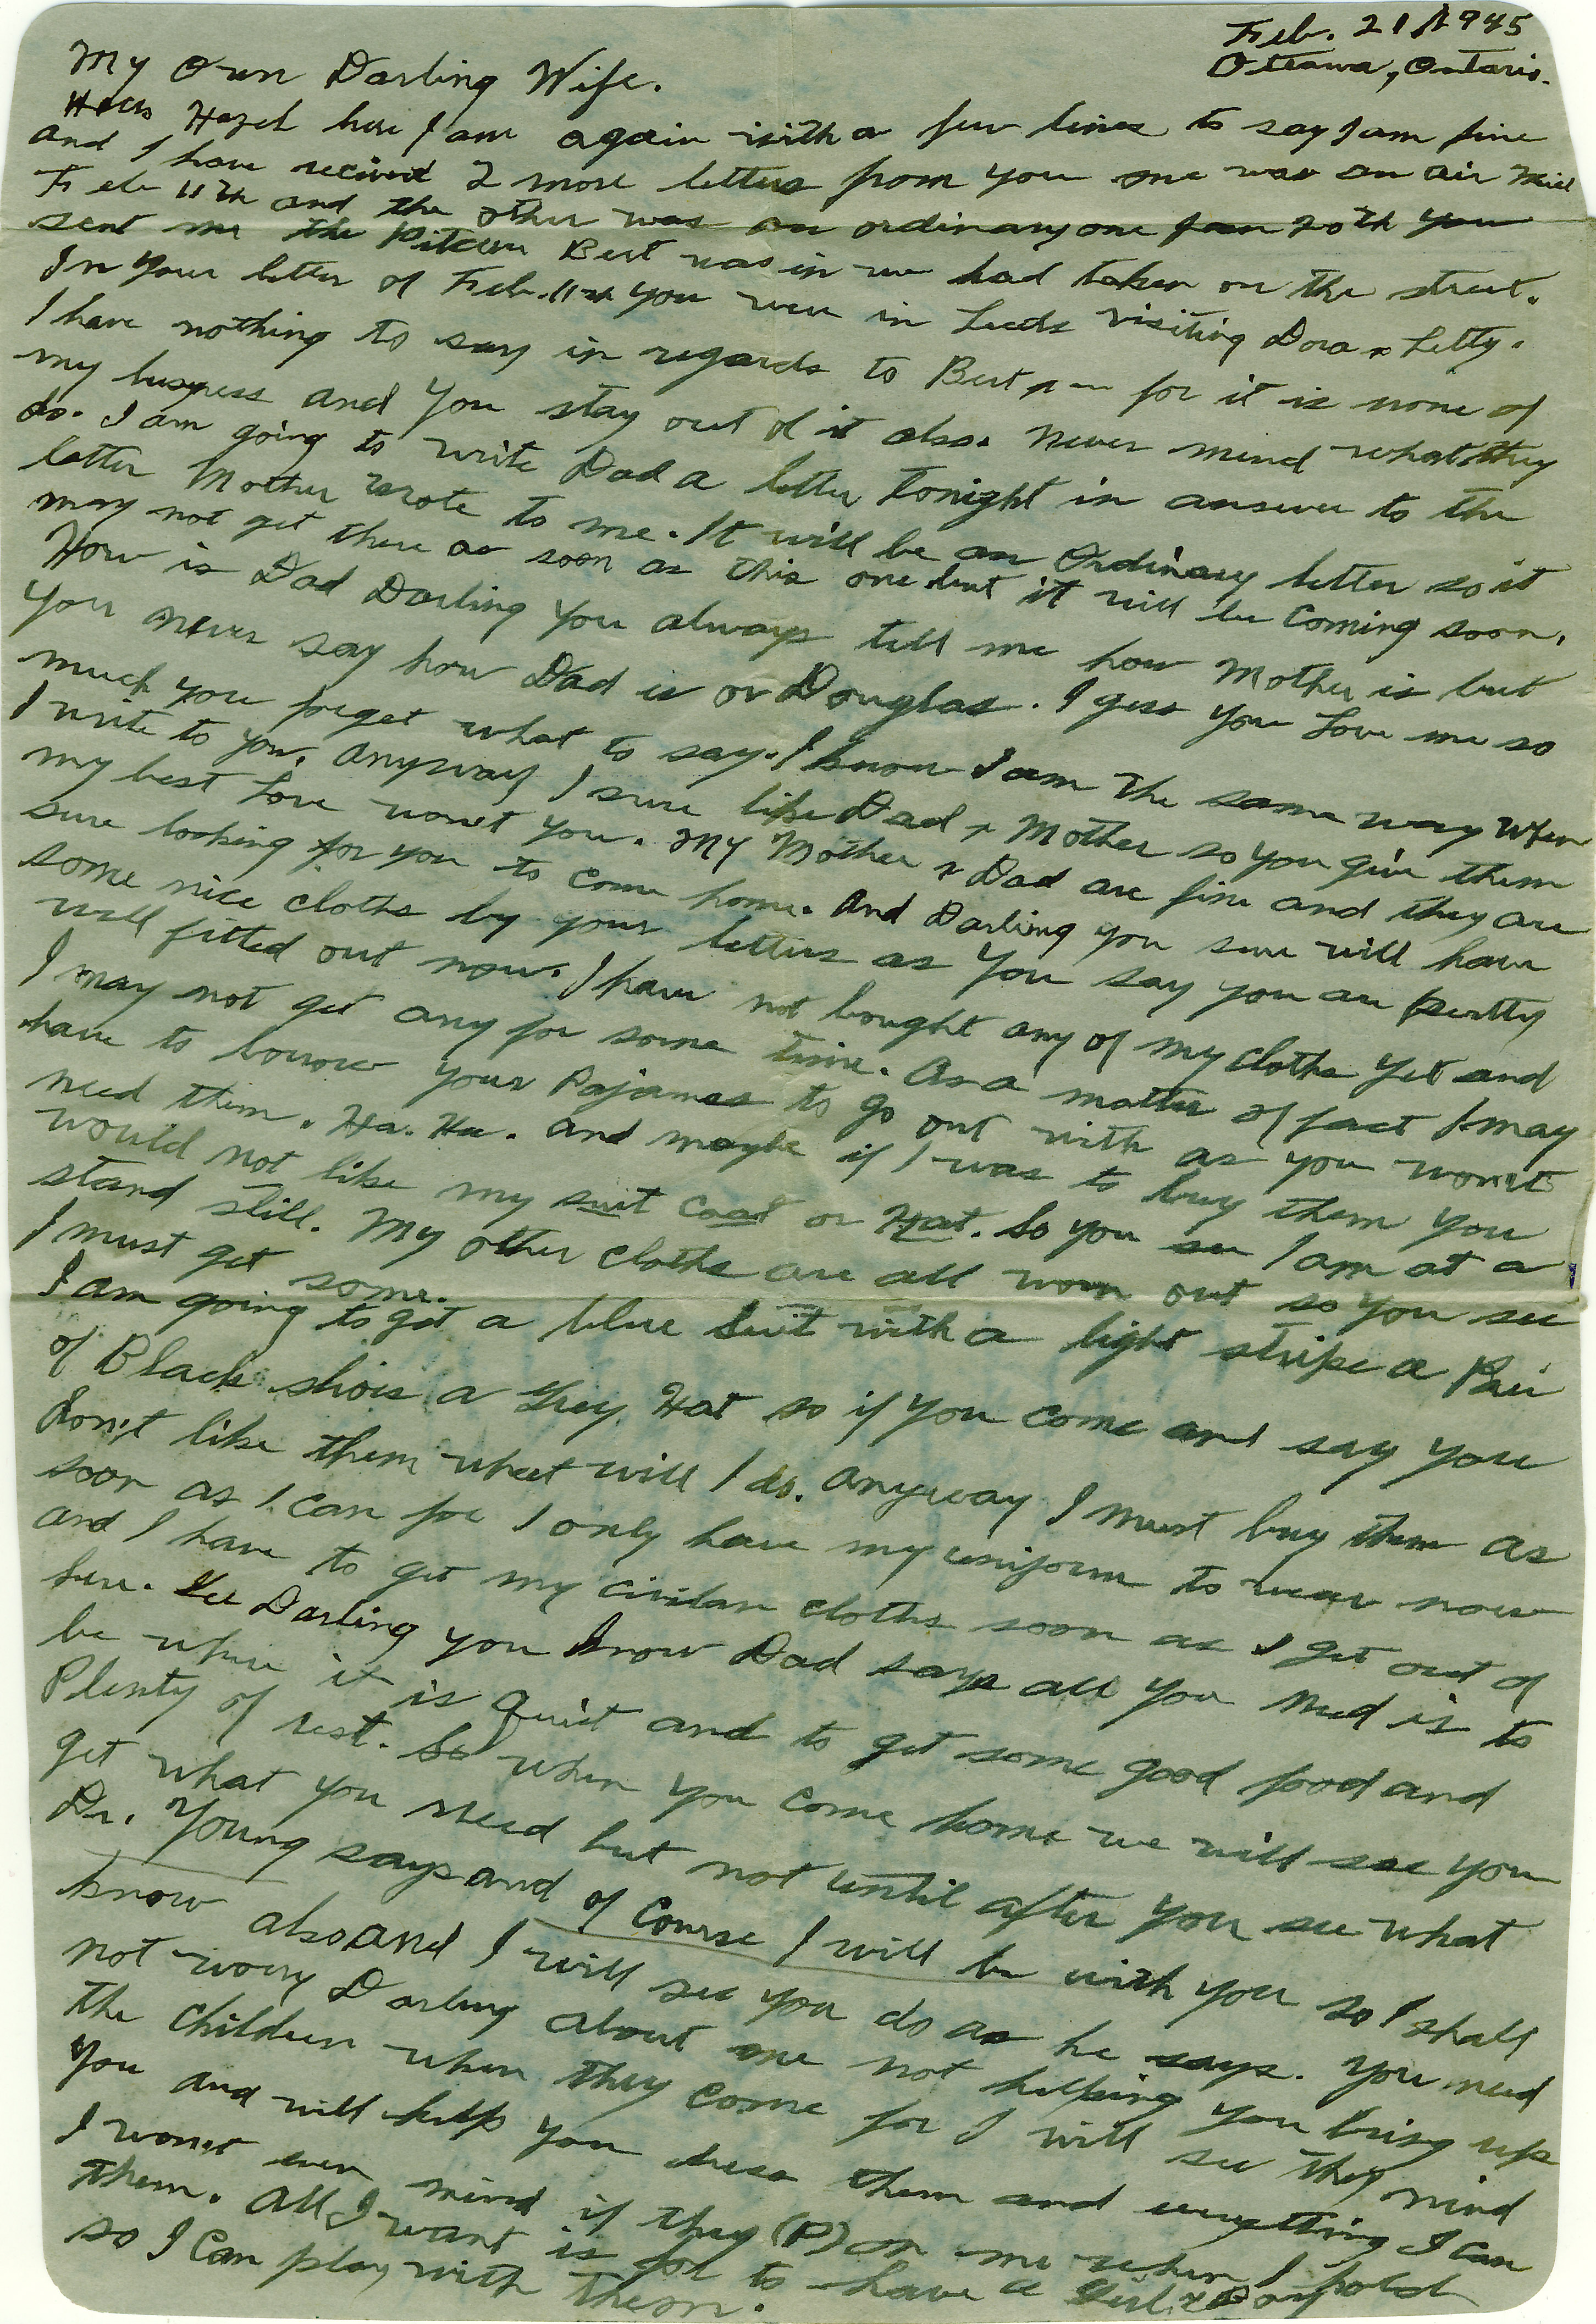 Feb. 21/1945
Ottawa, Ontario.
My Own Darling Wife.
Hello Hazel here I am again with a few lines to say I am fine
and I have recived 2 more letters from you one was an air Mail
Feb 11th and the other was an ordinary one Jan 20th you
sent me the Pitcure Bert was in we had taken on the street.
In your letter of Feb. 11th you were in Leeds visiting Dora & Letty.
I have nothing to say in regards to Bert for it is none of
my busyness and you stay out of it also. Never mind what they
do. I am going to write Dad a letter Tonight in answer to the
letter Mother wrote to me. It will be an Ordinary letter so it
may not get there as soon as this one but it will be Coming soon.
How is Dad Darling you always tell me how Mother is but
you never say how Dad is or Douglas. I gess you Love me so
much you forget what to say. I know I am the same way when
I write to you. Anyway I sure like Dad & Mother so you give them
my best Love won't you. My Mother & Dad are fine and they are
sure looking for you to come home. And Darling you sure will have
some nice cloths by your letters as you say you are pertty
well fitted out now. I have not bought any of my cloths yet and
I may not get any for some time. As a matter of fact I may
have to borrow your Pajamas to go out with as you won't
need them. Ha. Ha. And maybe if I was to buy them you
would not like my suit Coat or Hat. So you see I am at a
stand still. My other cloths are all worn out so you see
I must get some.
I am going to get a blue Suit with a light stripe a Pair
of Black shoes a Grey Hat so if you come and say you
don't like them what will I do. Anyway I must buy them as
soon as I can for I only have my uniform to wear now
and I have to get my civilan cloths soon as I get out of
here. Darling you know Dad says all you need is to
be where it is Quiet and to get some good food and
Plenty of rest. So when you come home we will see you
get what you need but not until after you see what
Dr. Young says and of Course I will be with you so I shall
know also and I will see you do as he says. You need
not worry Darling about me not helping you bring up
the children when they come for I will see they mind
you and will help you dress them and everything I can
I won't even mind if they (P) on me when I hold
them. All I want is for to have a Girl & Boy
so I can play with them.